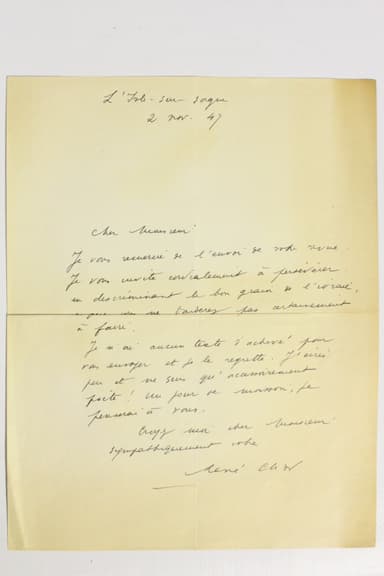 L'Isle-sur-Sorgue
2 nov. 47
Cher Monsieur
Je vous remercie de l'envoi de votre revue.
Je vous invite cordialement à persévérer
en discriminant le bon grain de l'ivraie,
ce que vous ne tarderez pas certainement
à faire.
Je n'ai aucun texte d'achevé pour
vous envoyer et je le regrette. J'écris
peu et ne suis qu'accessoirement
poète! Un jour de moisson, je
penserai à vous.
Croyez moi cher Monsieur
sympathiquement votre
René Char